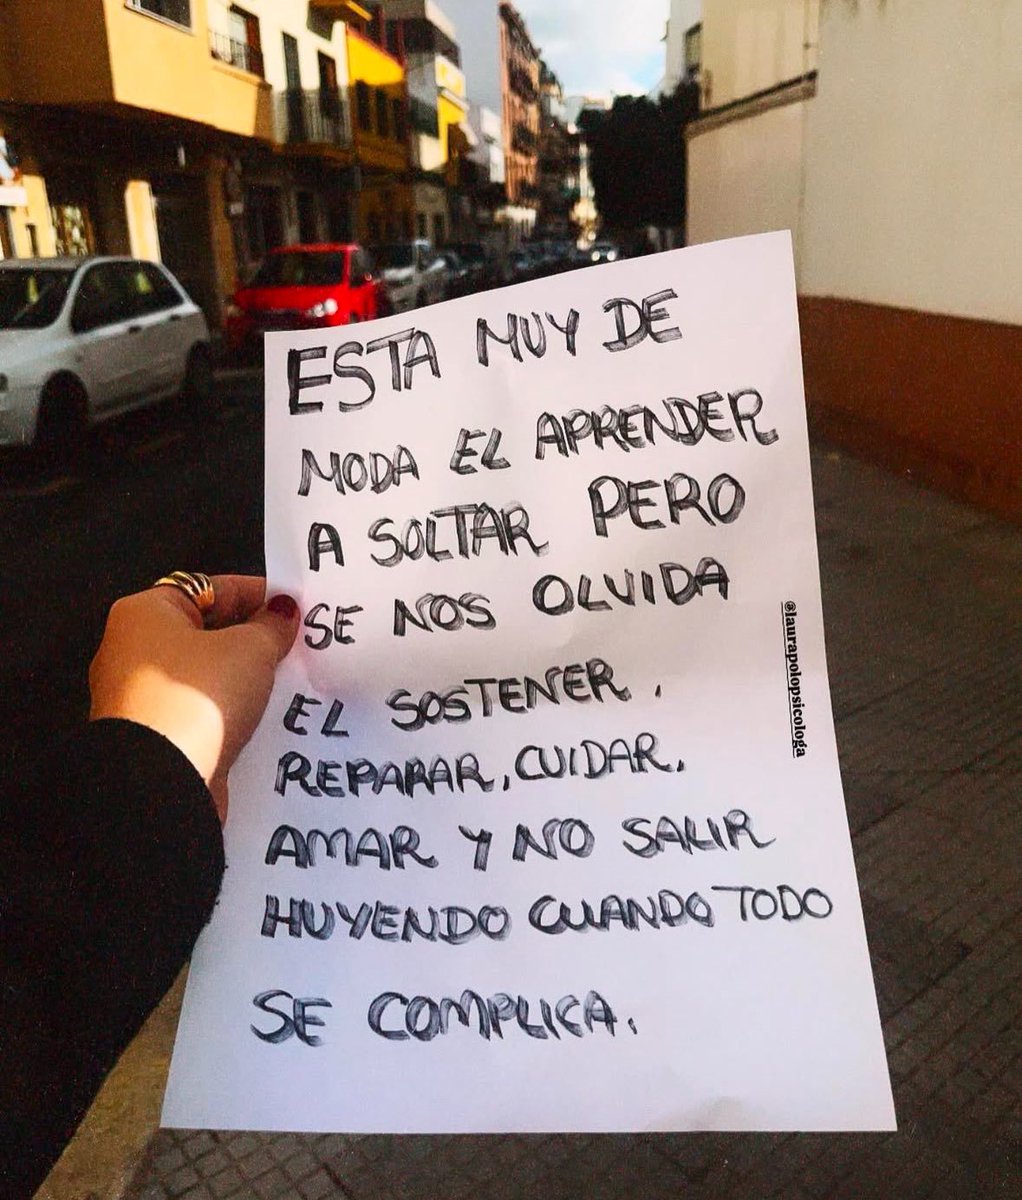 ESTA MUY DE
MODA EL APRENDER
A SOLTAR PERO
SE NOS OLVIDA
EL SOSTENER,
REPARAR, CUIDAR,
AMAR Y NO SALIR
HUYENDO CUANDO TODO
SE COMPLICA.
@laurapolopsicologa